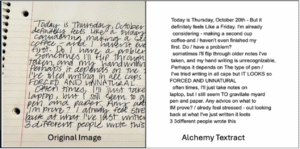 Today is Thursday, October
definitely feels like a Friday.
considering making a second
coffee - and I haven't
first. Do I have a problem?
sometimes I'll flip through
taken, and my handwriting
perhaps it depends on the
I've tried writing in all caps
FORCED AND UNNATURAL
Often times, I'll just take
laptop, but I still seem to
pen and paper. Any advice
improve? I already feel stressed
back at what I've just written
3 different people wrote this
Original Image
Today is Thursday, October 20th - But it
definitely feels Like a Friday. I'm already
considering - making a second cup
coffee-and I haven't even finished my
first. Do I have a problem?
sometimes I'll flip through older notes I've
taken, and my hand writing is unrecognizable.
Perhaps it depends on The type of pen I
I've tried writing in all caps but IT LOOKS so
FORCED AND UNNATURAL
often times, I'll just take notes on
laptop, but I still seem TO gravitate myard
pen and paper. Any advice on what to
IM prove? I already feel stressed - out looking
back at what I've just written it looks
3 different people wrote this
Alchemy Textract